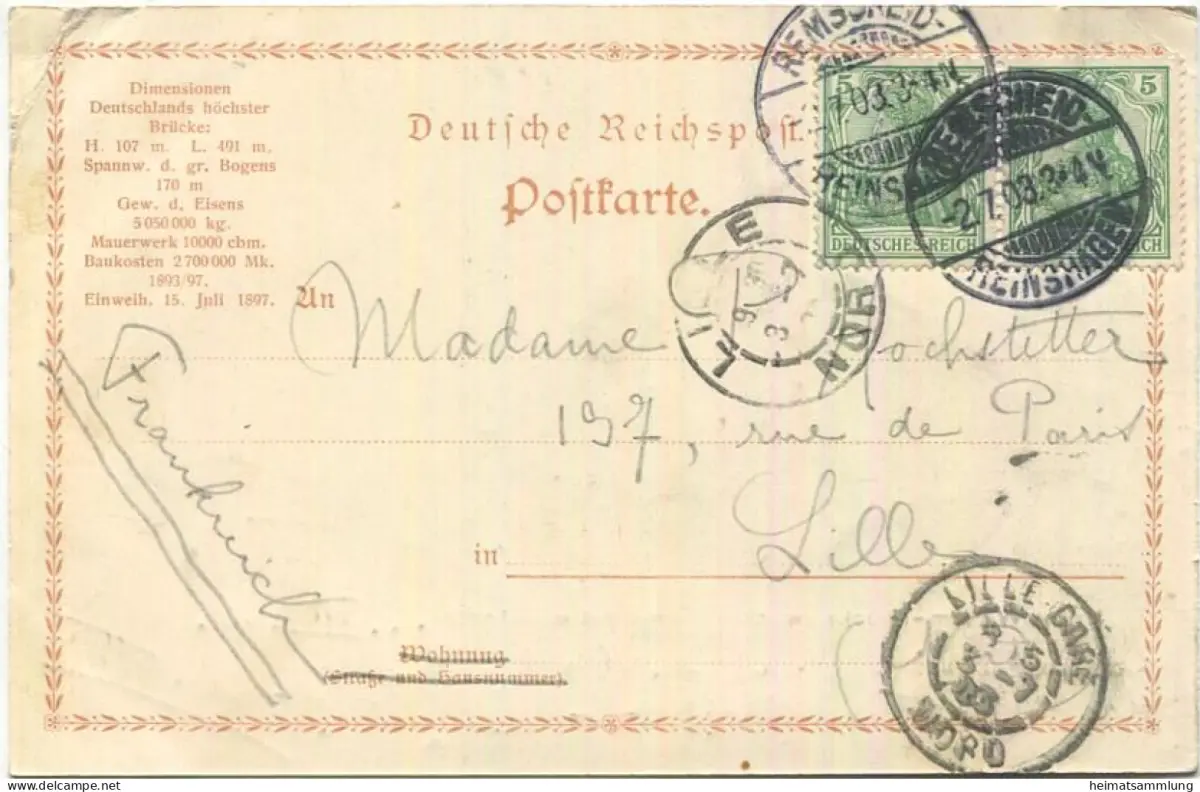 Dimensionen
Deutschlands höchster
Brücke:
H. 107 m. L. 491 m.
Spannw. d. gr. Bogens
170 m
Gew. d. Eisens
5 050 000 kg.
Mauerwerk 10000 cbm.
Baukosten 2 700 000 Mk.
1893/97.
Einweih. 15. Juli 1897.
Deutsche Reichspost.
Postkarte.
5
5
DEUTSCHES REICH
REICH
REMSCHEID-
03 3-4N
REINSHAGEN
REMSCHEID-
-2.7.03.3-4N
REINSHAGEN
LILLE
NORD
An Madame Hochstetter
197, rue de Paris
in Lille
Frankreich
Wohnung
(Straße und Hausnummer).
LILLE-GARE
NORD
www.heimatsammlung.de
heimatsammlung